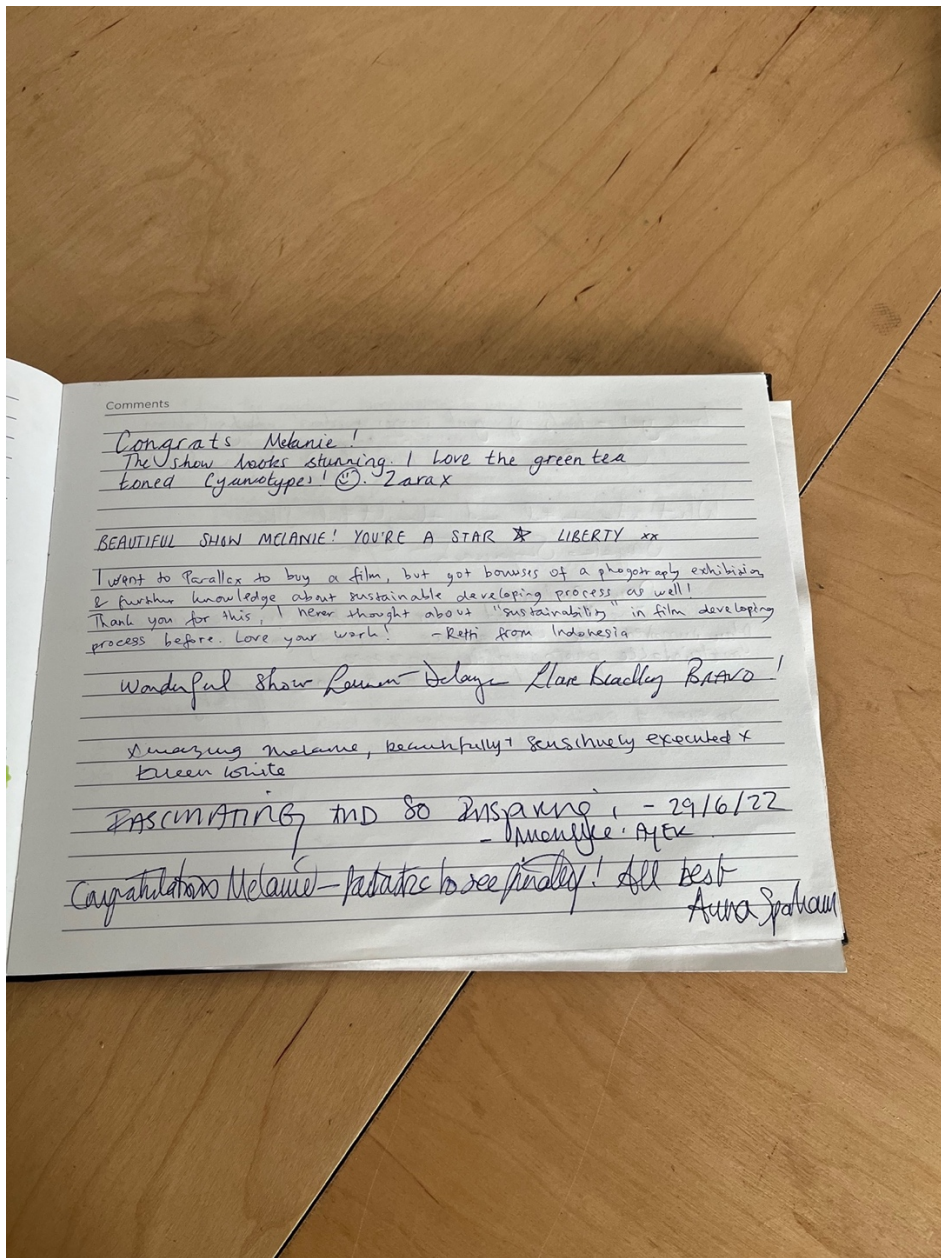 Comments
Congrats Melanie!
The show looks stunning. I Love the green tea
toned Cyanotypes! ☺. Zara x
BEAUTIFUL SHOW MELANIE! YOU'RE A STAR ☆ LIBERTY xx
I went to Parallax to buy a film, but got bonuses of a phogotraphy exhibision
& further knowledge about sustainable developing process as well!
Thank you for this, I never thought about "sustainability" in film developing
process before. Love your work! - Retti from Indonesia
Wonderful Show Bradley BRAVO!
Amazing Melanie, beautifully + sensitively executed x
White
FASCINATING AND SO INSPIRING, - 29/6/22
Congratulations Melanie – fantastic to see finally! All best
Anna